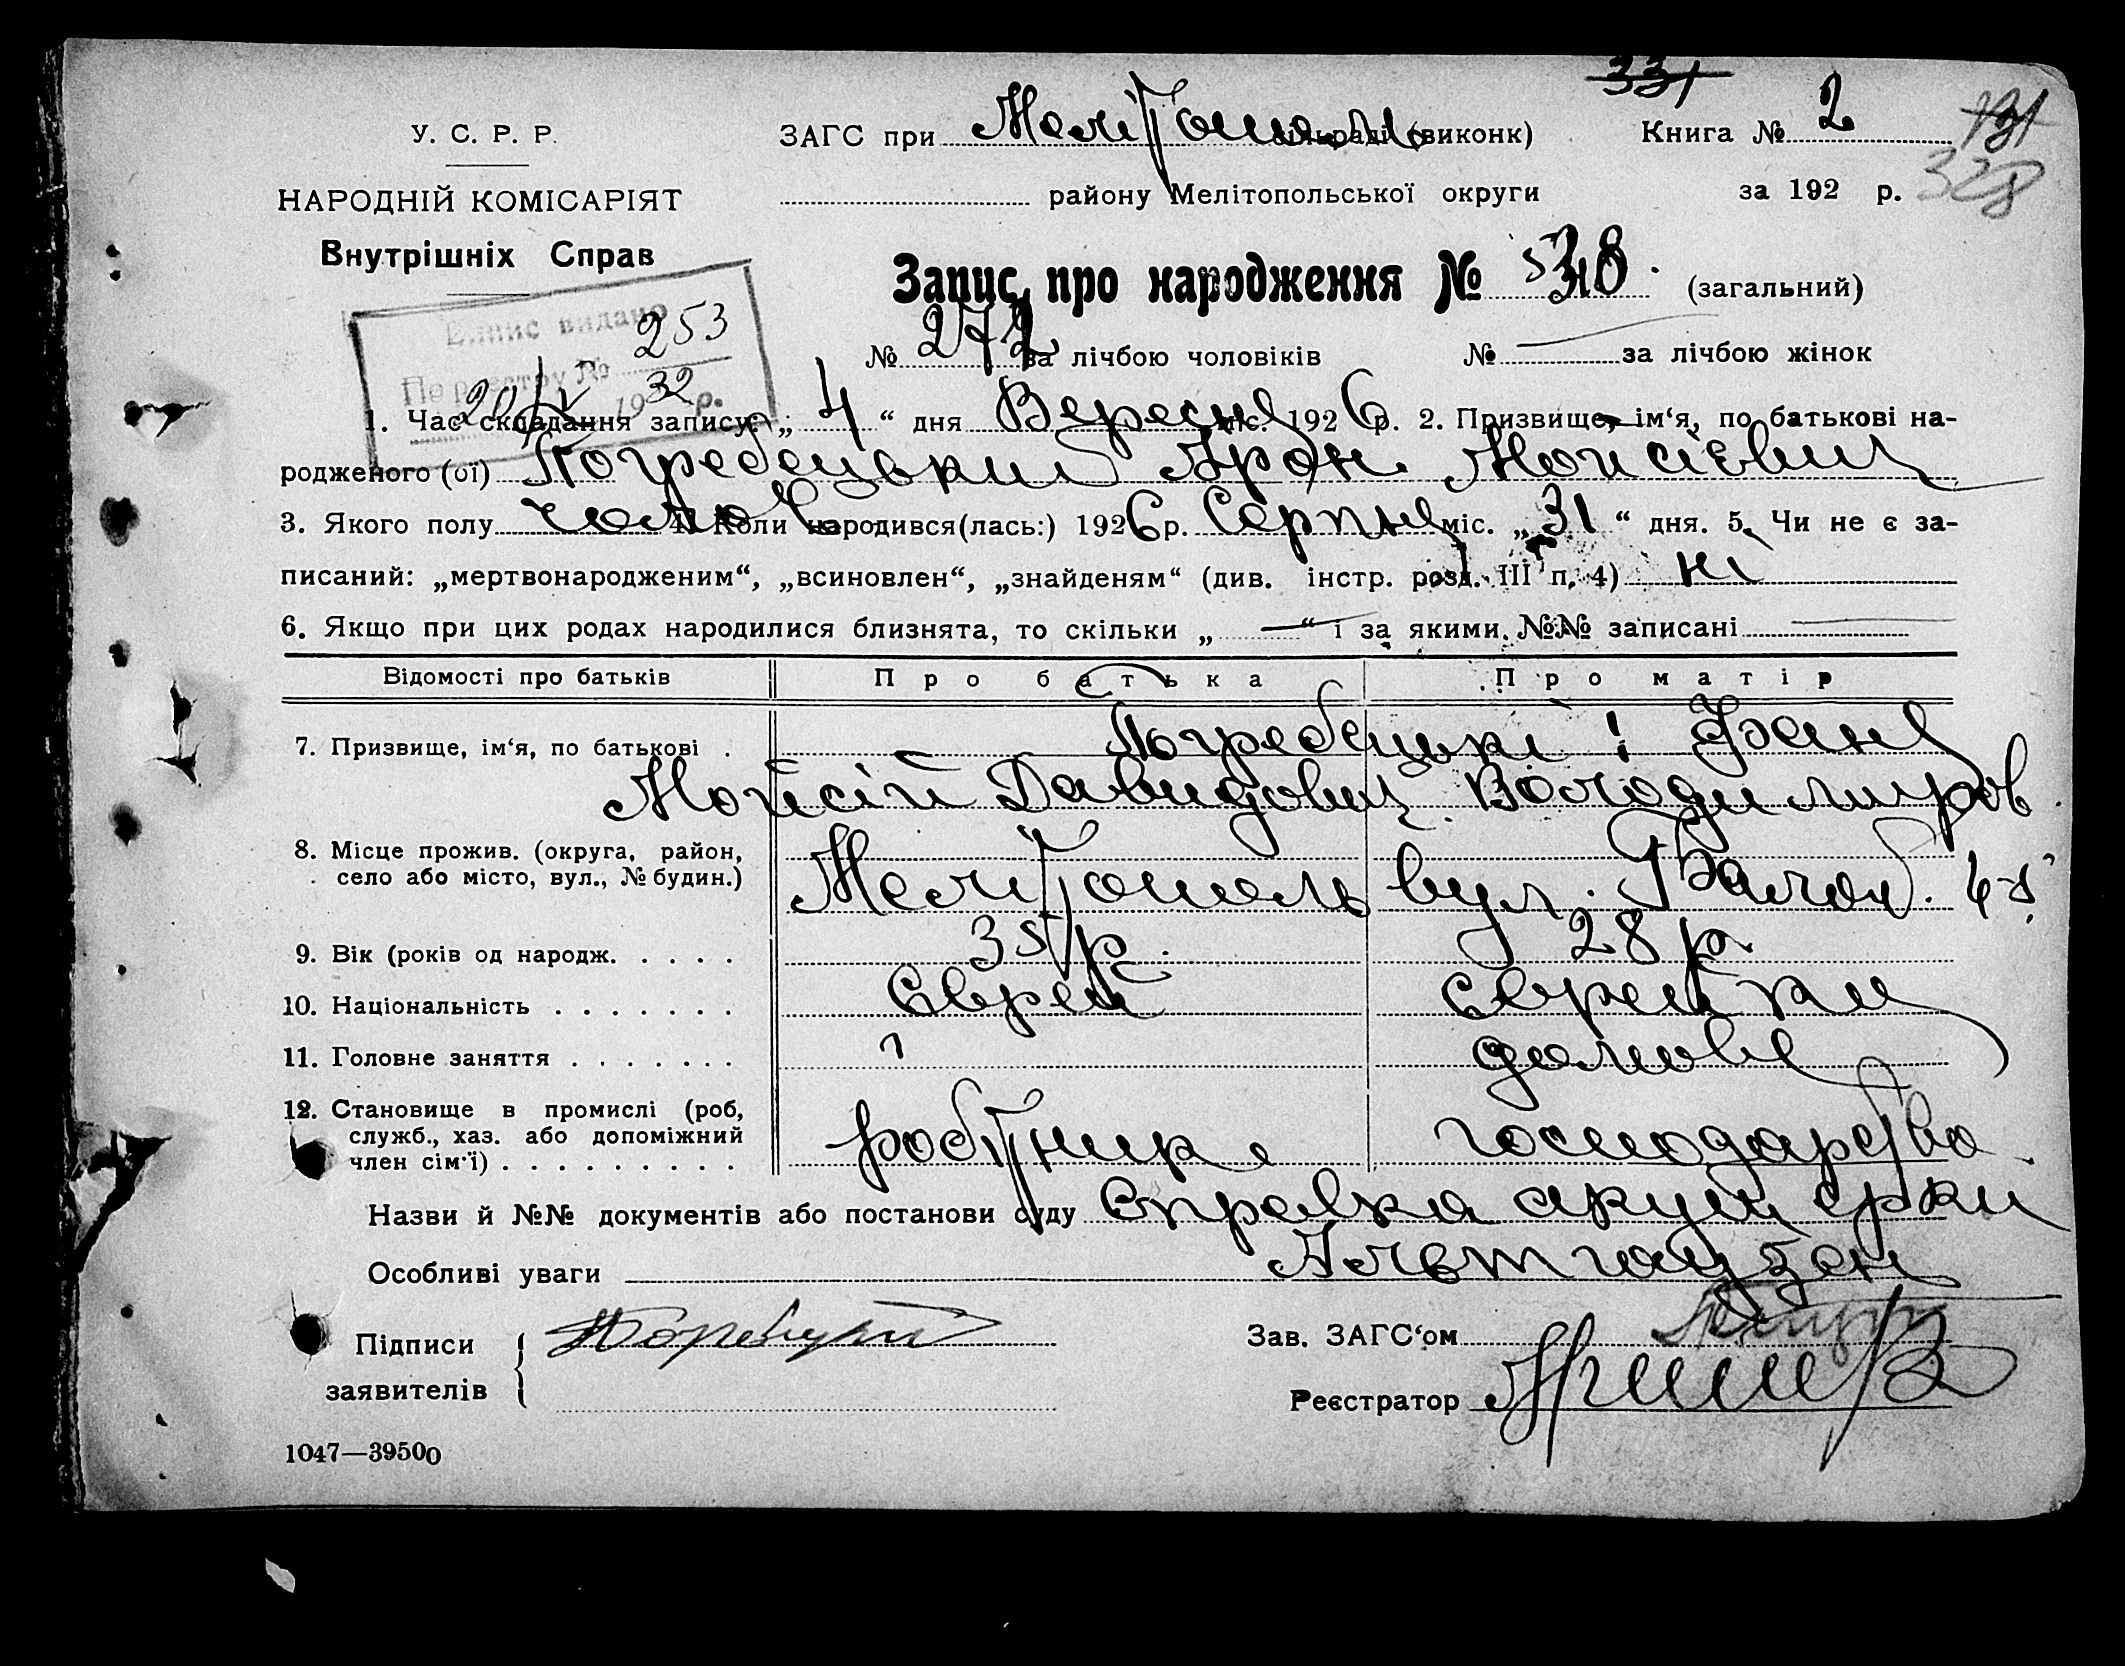 331
У. С. Р. Р.
ЗАГС при Мелітополь сільраді (виконк)
Книга № 2
131
328
НАРОДНІЙ КОМІСАРІЯТ
району Мелітопольської округи
за 192 р.
Внутрішніх Справ
Запис про народження № (загальний)
Випис видано
По реєстру № 253
20/V 1932 р.
№ 272 за лічбою чоловіків № за лічбою жінок
1. Час складання запису: „ 4 “ дня Вересня міс. 1926 р. 2. Призвище, ім‘я, по батькові на-
родженого (ої) Погребецький Арон Мойсієвич
3. Якого полу чолов. 4. Коли народився(лась:) 1926 р. Серпня міс. „ 31 “ дня. 5. Чи не є за-
писаний: „мертвонародженим“, „всиновлен“, „знайденям“ (див. інстр. розд. III п. 4) ні
6. Якщо при цих родах народилися близнята, то скільки „ — “ і за якими №№ записані —
Відомості про батьків
Про батька
Про матір
7. Призвище, ім‘я, по батькові .
Погребецькі і Фаня
Мойсій Давидович Володимиров.
8. Місце прожив. (округа, район,
село або місто, вул., № будин.)
Мелітополь вул.
9. Вік (років од народж. . . . .
35 р. 28 р.
10. Національність . . . . . . .
Єврей Єврейки
11. Головне заняття . . . . . . .
? домове
12. Становище в промислі (роб,
служб., хаз. або допоміжний
член сім‘ї) . . . . . . . . .
робітник господарство
Назви й №№ документів або постанови суду Справка акушерки
Особливі уваги Альтгаузен
Підписи
заявителів
Зав. ЗАГС‘ом
Реєстратор
1047—39500